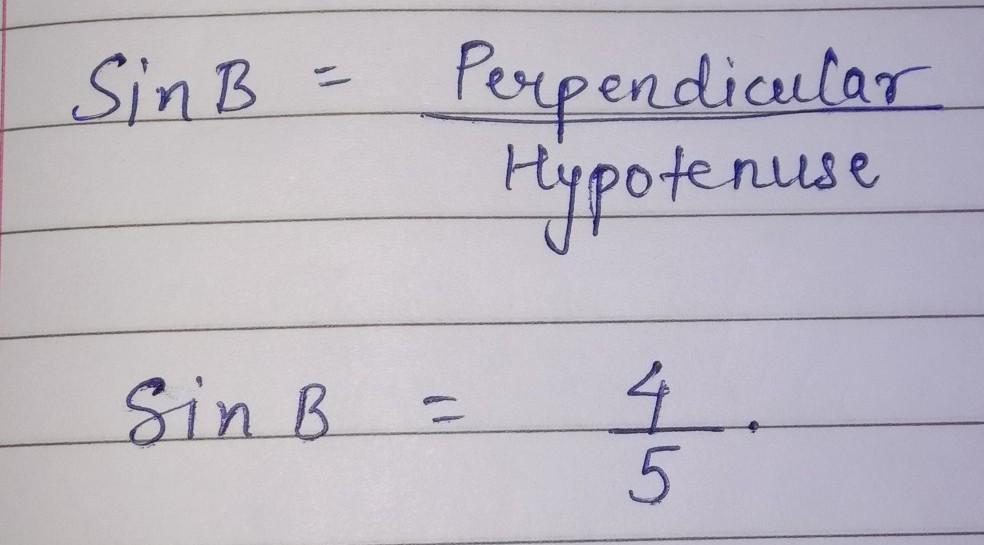 Sin B = Perpendicular
Hypotenuse
Sin B = 4
5 .